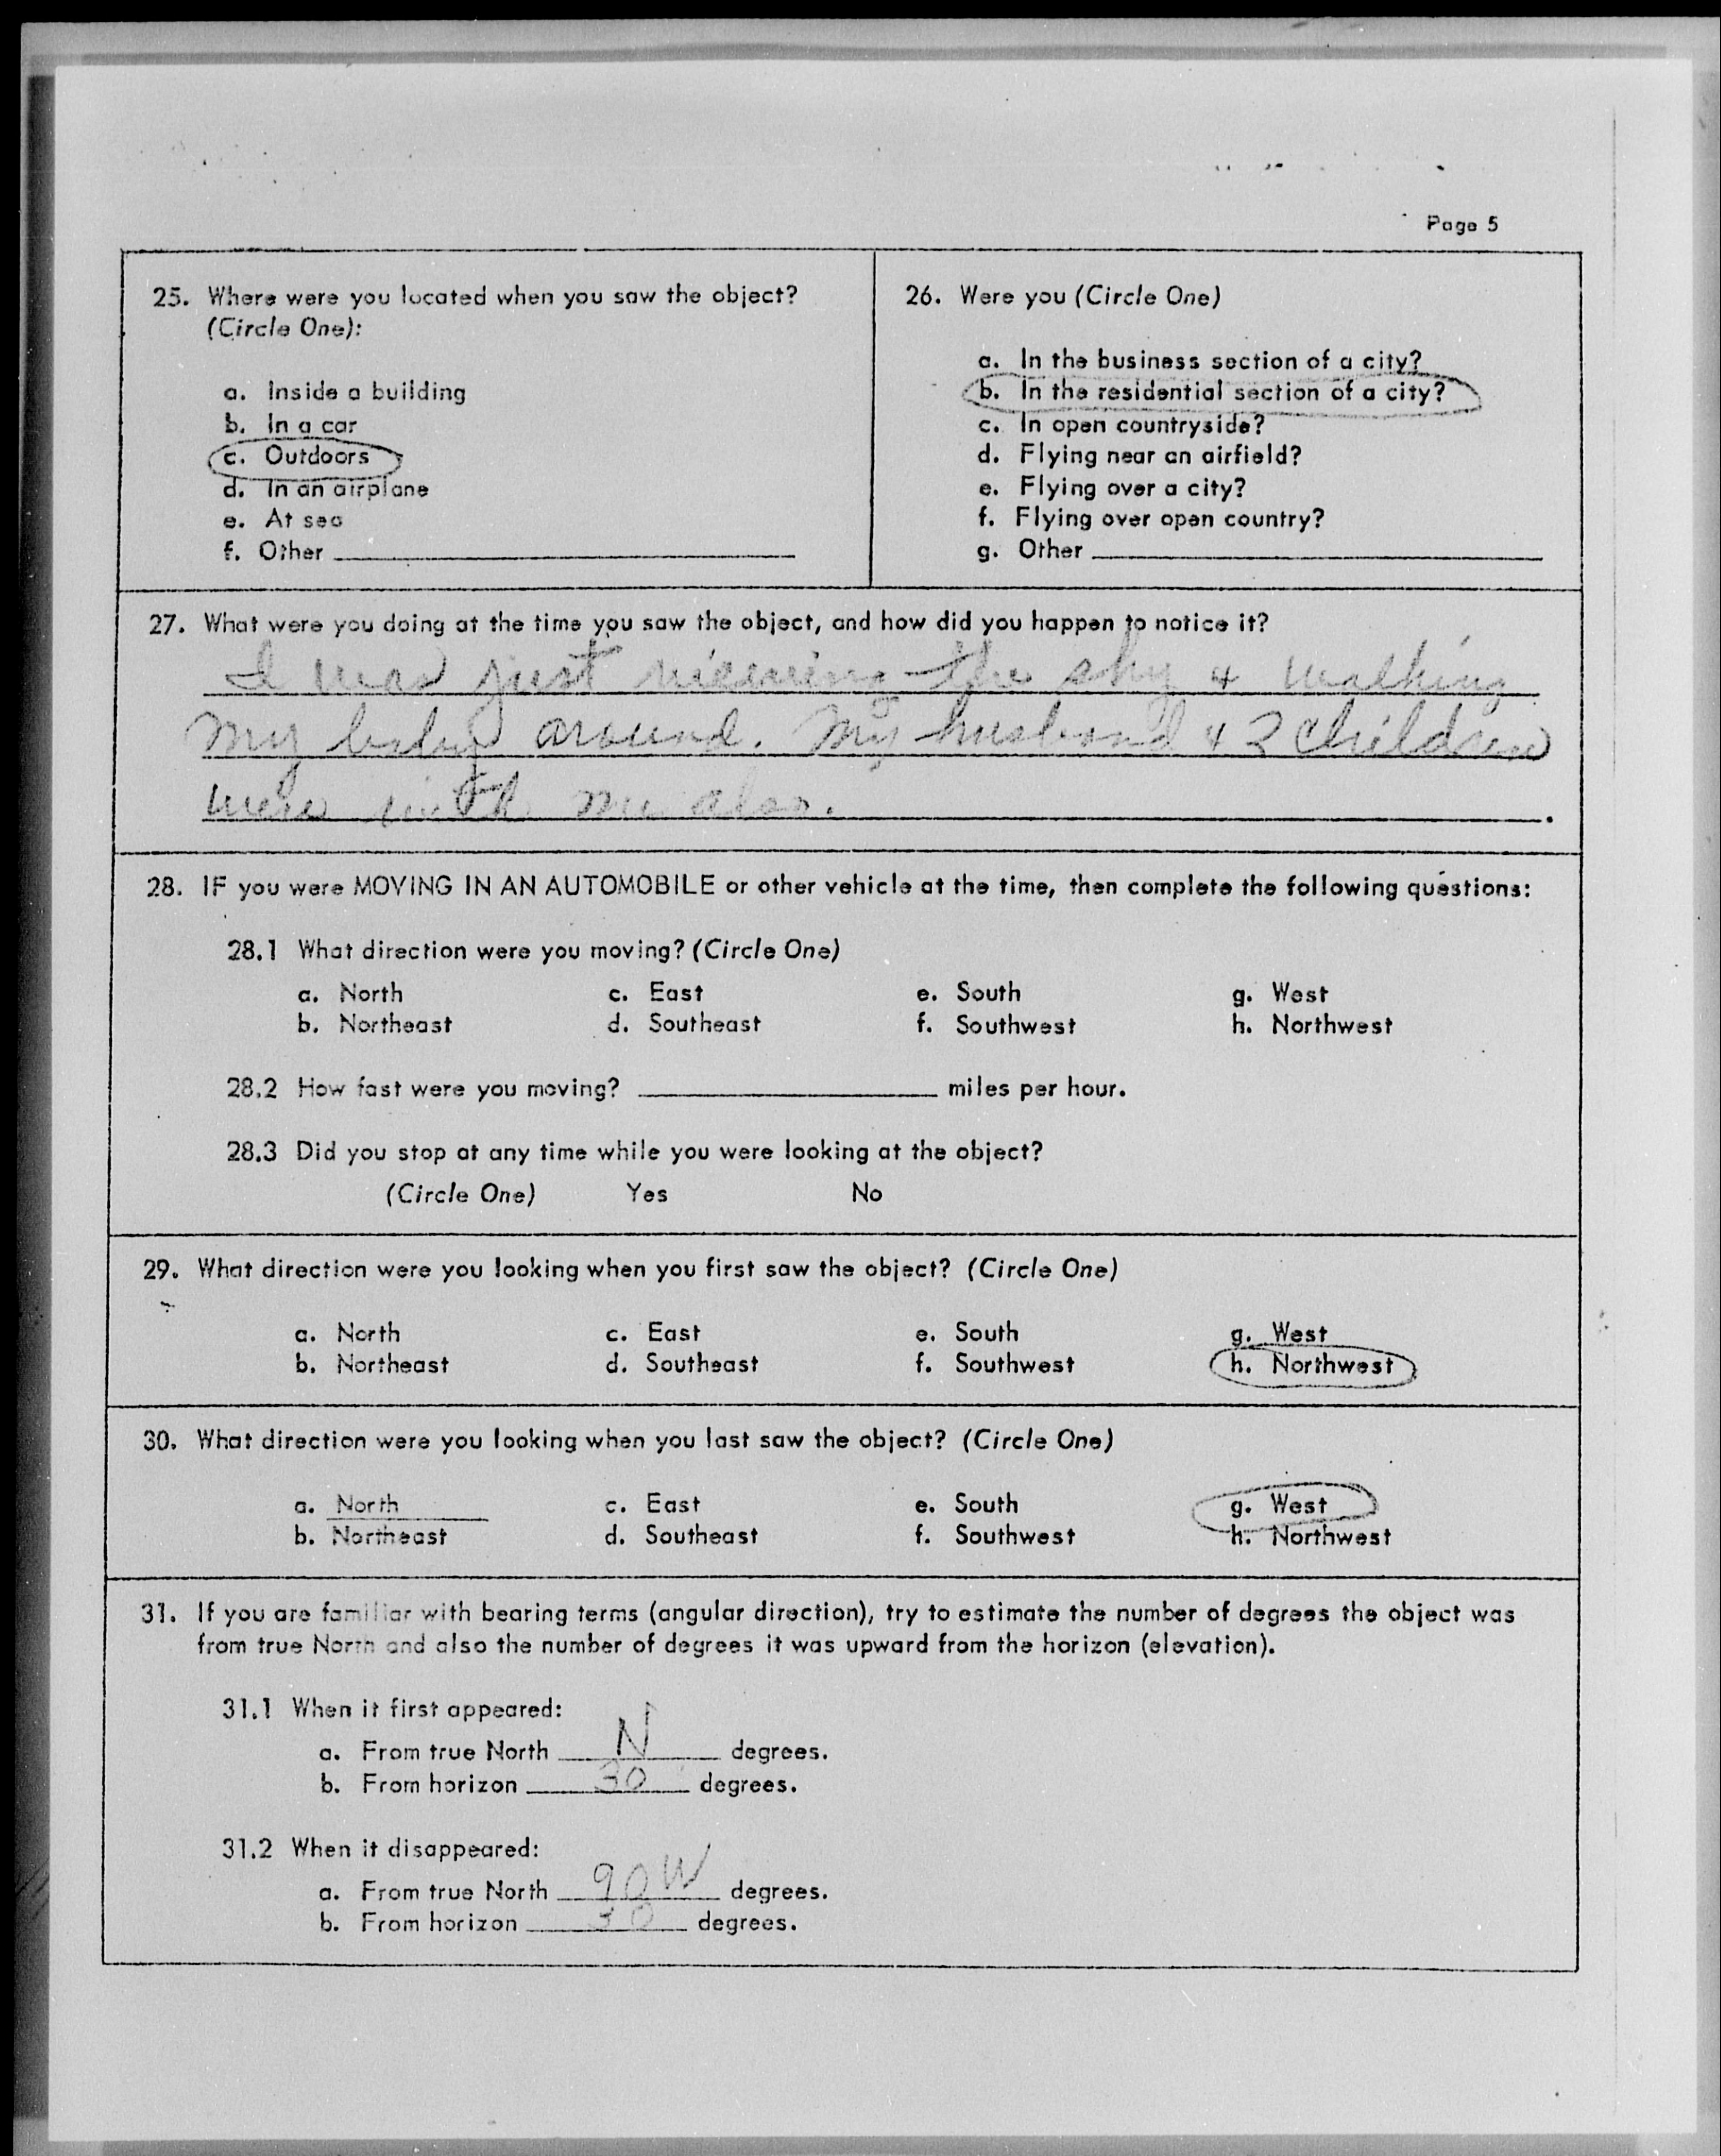 Page 5
25. Where were you located when you saw the object?
(Circle One):
a. Inside a building
b. In a car
c. Outdoors
d. In an airplane
e. At sea
f. Other
26. Were you (Circle One)
a. In the business section of a city?
b. In the residential section of a city?
c. In open countryside?
d. Flying near an airfield?
e. Flying over a city?
f. Flying over open country?
g. Other
27. What were you doing at the time you saw the object, and how did you happen to notice it?
I was just viewing the sky & walking
my baby around. My husband & 2 children
were with me also.
28. IF you were MOVING IN AN AUTOMOBILE or other vehicle at the time, then complete the following questions:
28.1 What direction were you moving? (Circle One)
a. North c. East e. South g. West
b. Northeast d. Southeast f. Southwest h. Northwest
28.2 How fast were you moving? miles per hour.
28.3 Did you stop at any time while you were looking at the object?
(Circle One) Yes No
29. What direction were you looking when you first saw the object? (Circle One)
a. North c. East e. South g. West
b. Northeast d. Southeast f. Southwest h. Northwest
30. What direction were you looking when you last saw the object? (Circle One)
a. North c. East e. South g. West
b. Northeast d. Southeast f. Southwest h. Northwest
31. If you are familiar with bearing terms (angular direction), try to estimate the number of degrees the object was
from true North and also the number of degrees it was upward from the horizon (elevation).
31.1 When it first appeared:
a. From true North N degrees.
b. From horizon 30 degrees.
31.2 When it disappeared:
a. From true North 90 W degrees.
b. From horizon 30 degrees.